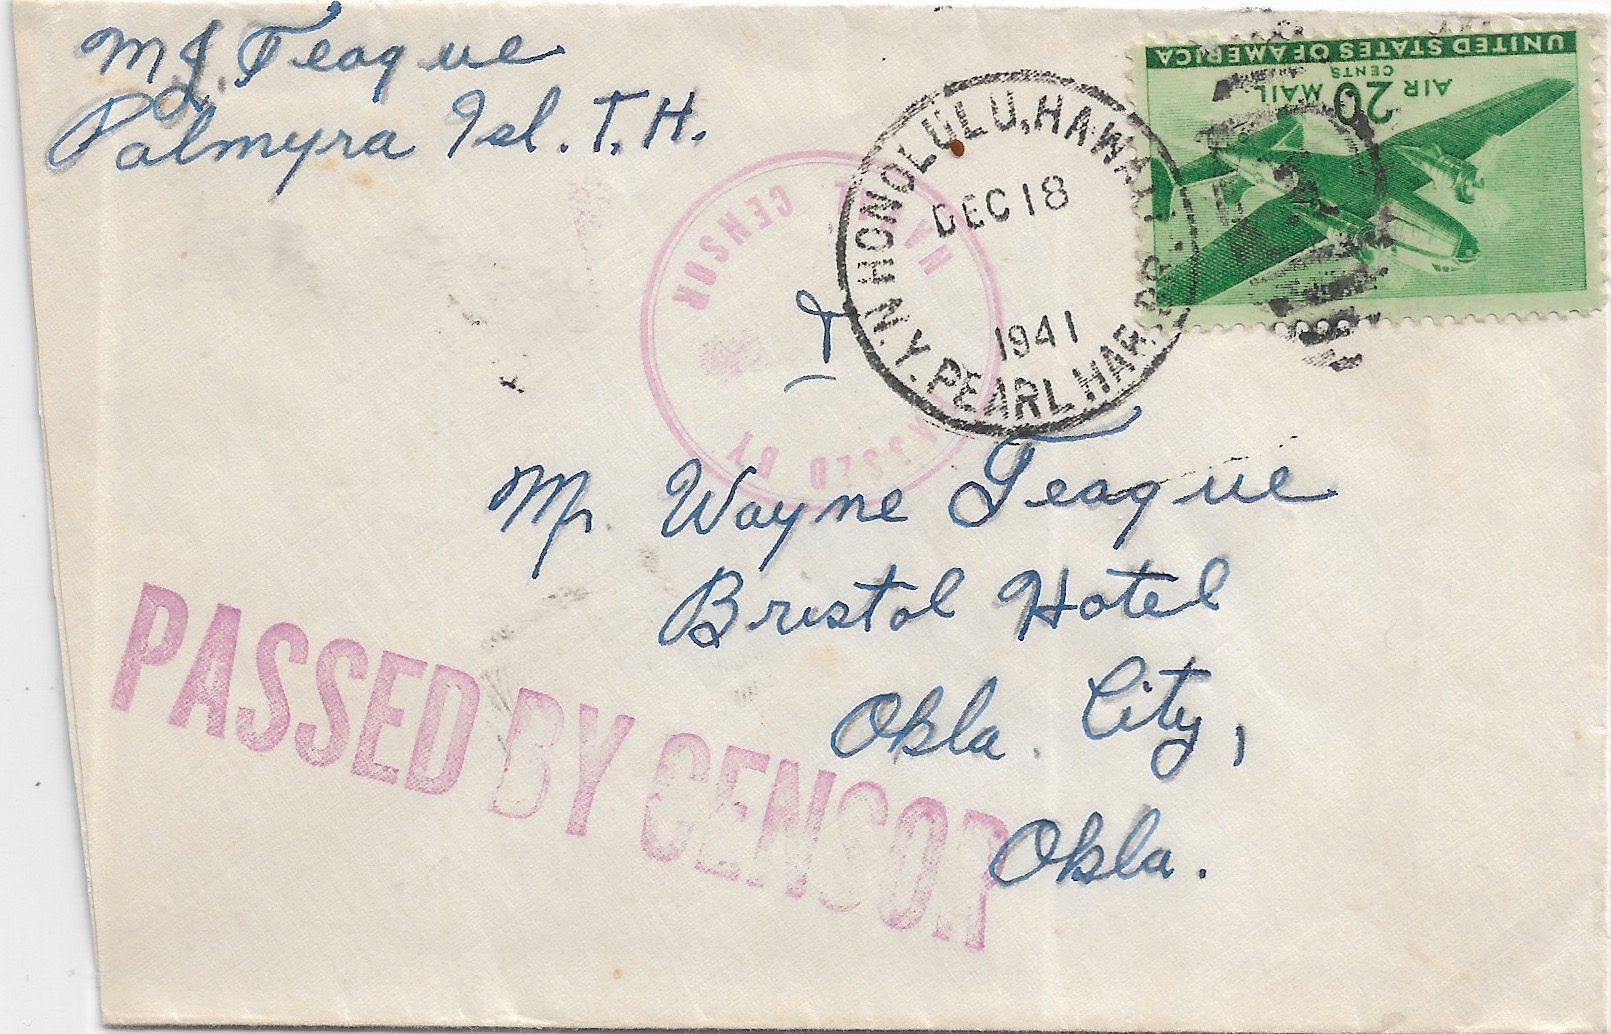 M J. Teague
Palmyra Isl. T.H.
UNITED STATES OF AMERICA
AIR MAIL
20 CENTS
HONOLULU, HAWAII
DEC 18
1941
N.Y. PEARL HARBOR
NAVAL CENSOR
PASSED BY
Mr. Wayne Teague
Bristol Hotel
Okla. City,
Okla.
PASSED BY CENSOR